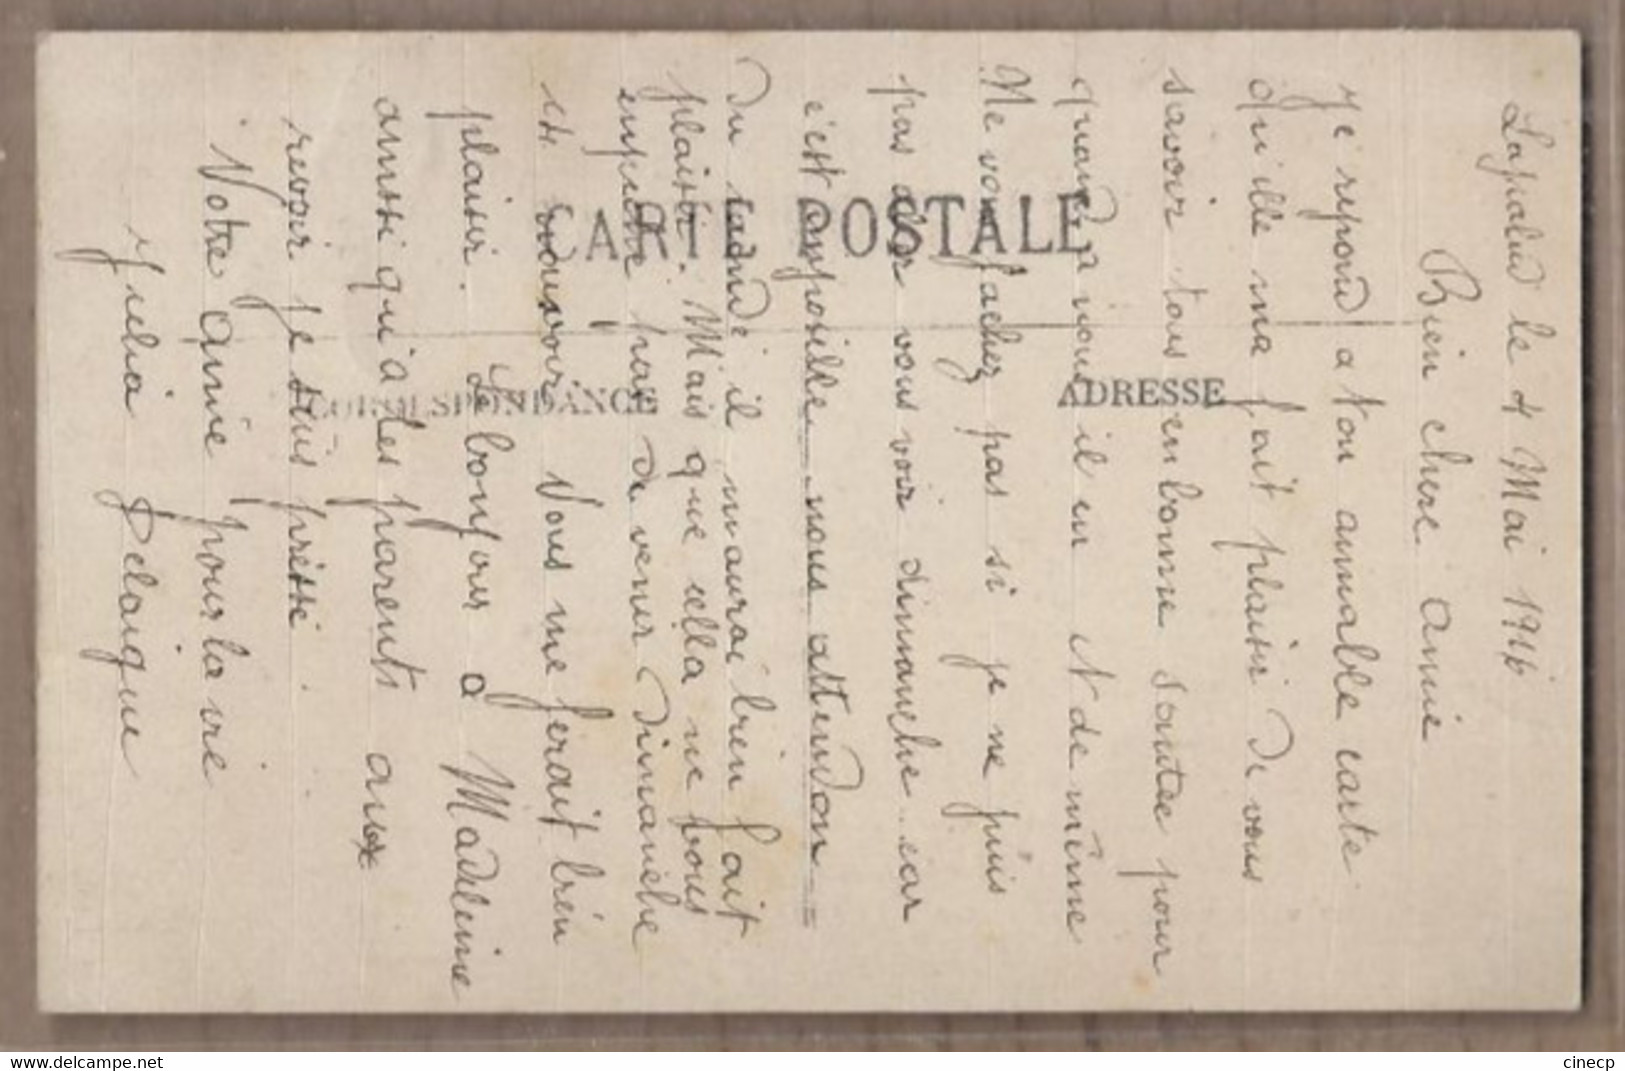 Lapalud le 4 Mai 1916
Bien chere Amie
Je repond a ton aimable carte
qu'elle ma fait plaisir de vous
savoir tous en bonne santee pour
quand a nous il en N de même
Ne vous fachez pas si je ne puis
pas aler vous voir dimanche car
c'est imposille nous attendon
Du monde il maurai bien fait
plaisir. Mais que cella ne vous
empeche pas de venir Dimanche
Vous me ferait bien
plaisir. Le bonjour a Madeleine
ainssi qu'a tes parents aux
revoir je suis préssé.
Votre Amie pour la vie
Julia Delaique
CARTE POSTALE
CORRESPONDANCE
ADRESSE
www.delcampe.net
cinecp